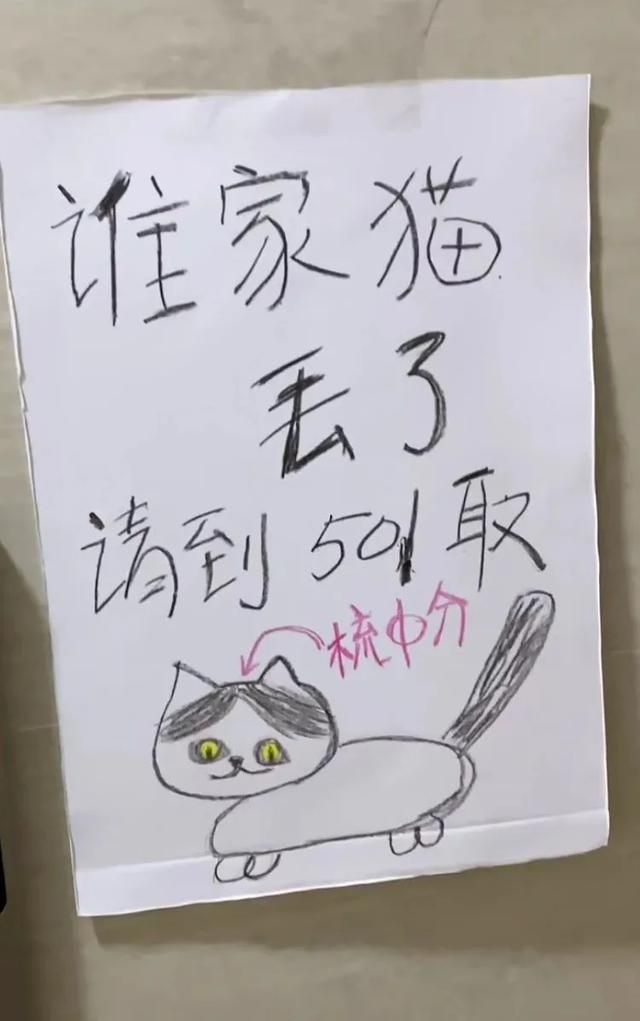 谁家猫
丢了
请到501取
梳中分